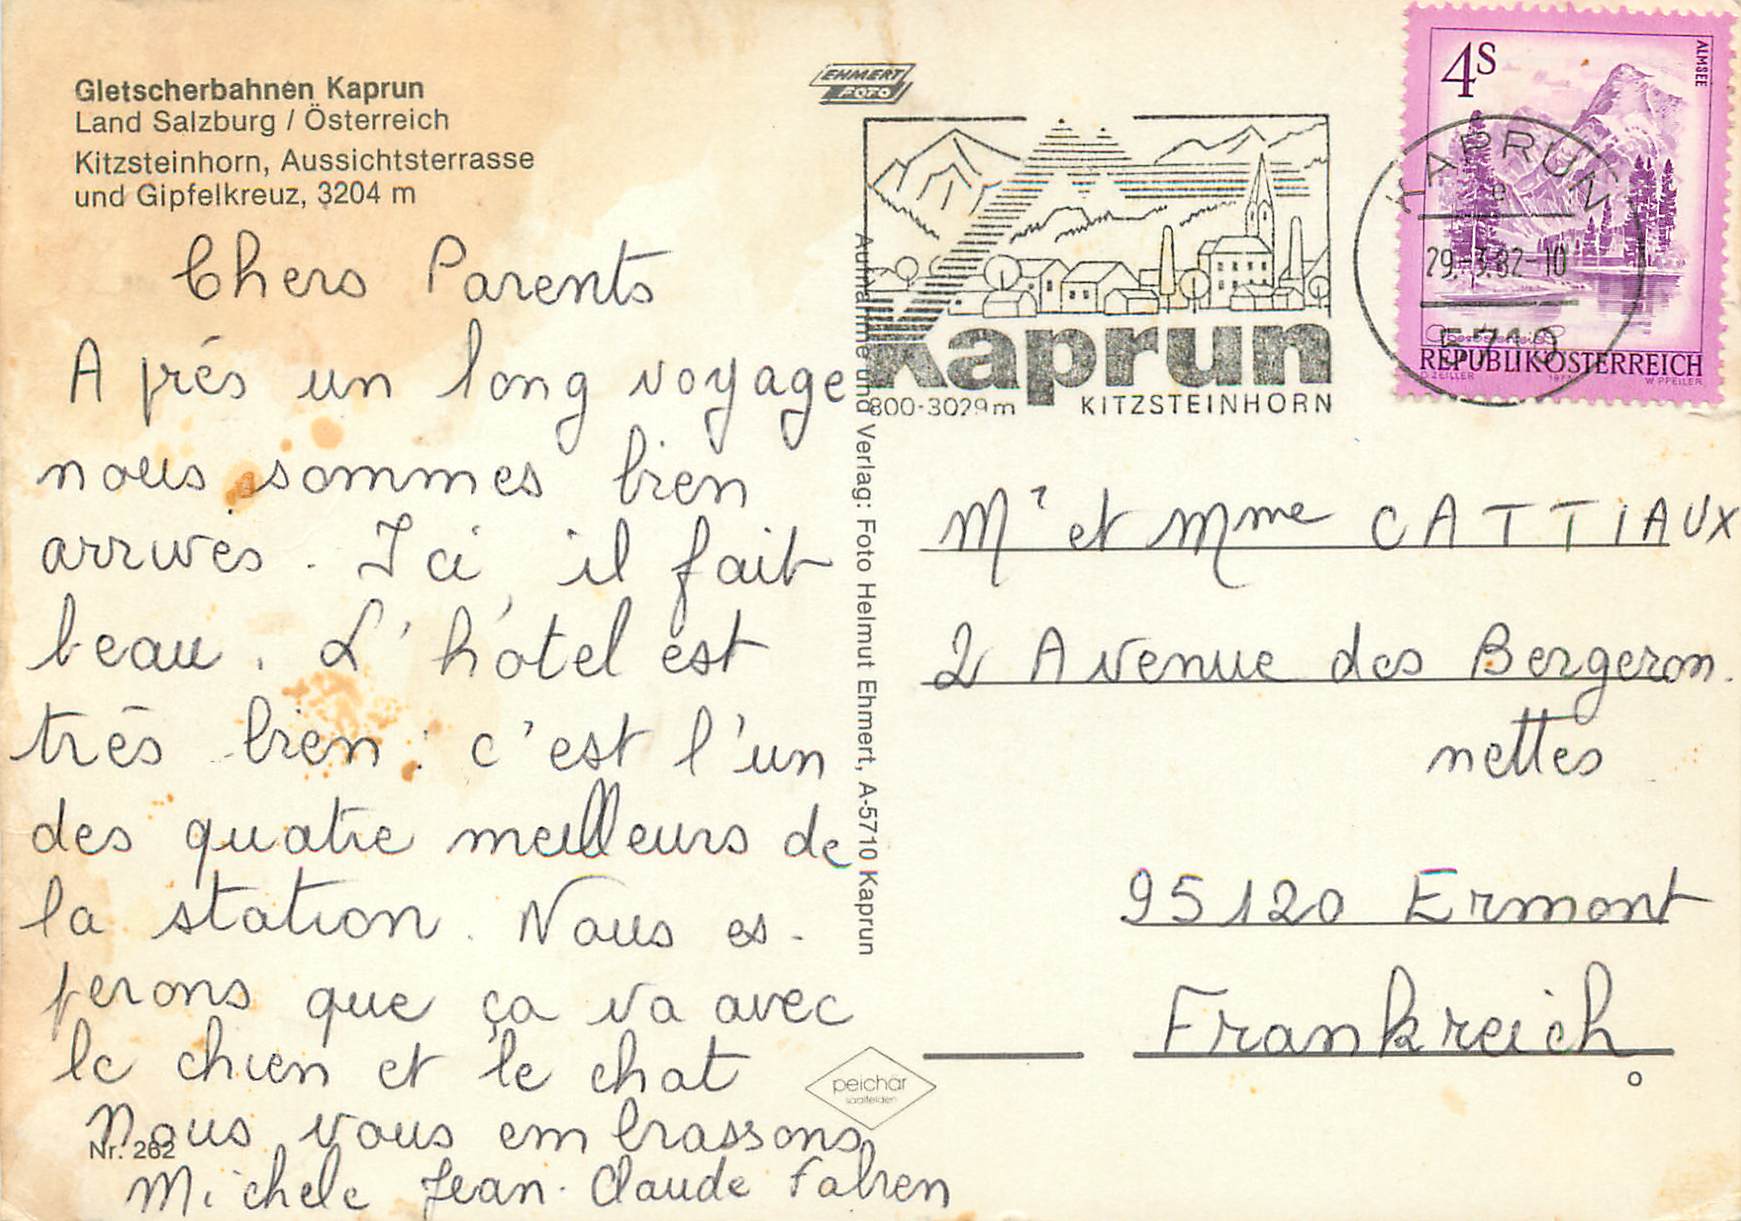 Gletscherbahnen Kaprun
Land Salzburg / Österreich
Kitzsteinhorn, Aussichtsterrasse
und Gipfelkreuz, 3204 m
Chers Parents
Après un long voyage
nous sommes bien
arrivés. Ici il fait
beau. L'hôtel est
très bien : c'est l'un
des quatre meilleurs de
la station. Nous es-
perons que ça va avec
le chien et le chat
Nous vous embrassons
Michele Jean-Claude Fabien
Nr. 262
EHMERT
FOTO
Aufnahme und Verlag: Foto Helmut Ehmert, A-5710 Kaprun
peichär
saalfelden
Kaprun
800-3029m KITZSTEINHORN
4S
ALMSEE
REPUBLIK ÖSTERREICH
O. ZEILLER 1973 W. PFEILER
KAPRUN
e
29.-3.82-10
5710
Mr et Mme CATTIAUX
2 Avenue des Bergeron-
nettes
95120 Ermont
Frankreich